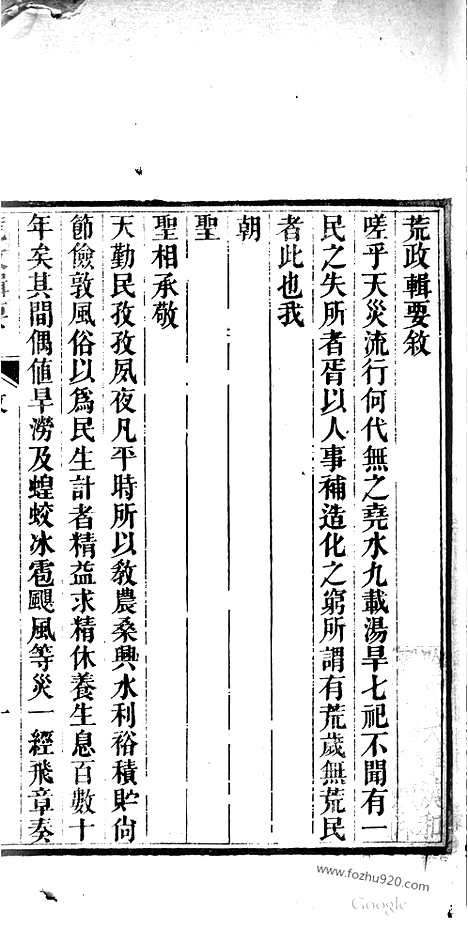 荒政輯要敘
嗟乎天災流行何代無之堯水九載湯旱七祀不聞有一
民之失所者胥以人事補造化之窮所謂有荒歲無荒民
者此也我
朝
聖
聖相承敬
天勤民孜孜夙夜凡平時所以敎農桑興水利裕積貯尙
節儉敦風俗以爲民生計者精益求精休養生息百數十
年矣其間偶值旱澇及蝗蛟冰雹颶風等災一經飛章奏
www.fozhu920.com
Google